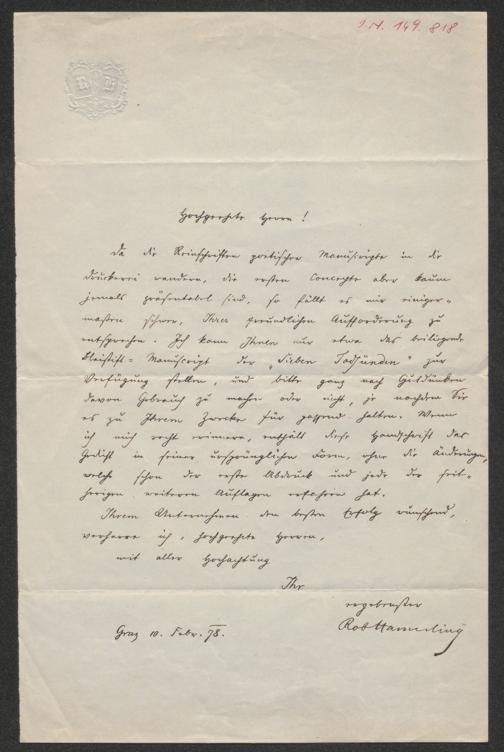 I.N. 149.818
Hochgeehrte Herren!
Da die Reinschriften poetischer Manuscripte in die
Druckerei wandern, die ersten Concepte aber kaum
jemals präsentabel sind, so fällt es mir einiger-
maßen schwer, Ihrer freundlichen Aufforderung zu
entsprechen. Ich kann Ihnen nur etwa das beiliegende
Bleistift-Manuscript der „Sieben Todsünden" zur
Verfügung stellen, und bitte ganz nach Gutdünken
davon Gebrauch zu machen oder nicht, je nachdem Sie
es zu Ihrem Zwecke für passend halten. Wenn
ich mich recht erinnere, enthält diese Handschrift das
Gedicht in seiner ursprünglichen Form, ohne die Änderungen,
welche schon der erste Abdruck und jede der seit-
herigen weiteren Auflagen erfahren hat.
Ihrem Unternehmen den besten Erfolg wünschend,
verharre ich, hochgeehrte Herren,
mit aller Hochachtung
Ihr
ergebenster
Rob Hamerling
Graz 10. Febr. 78.